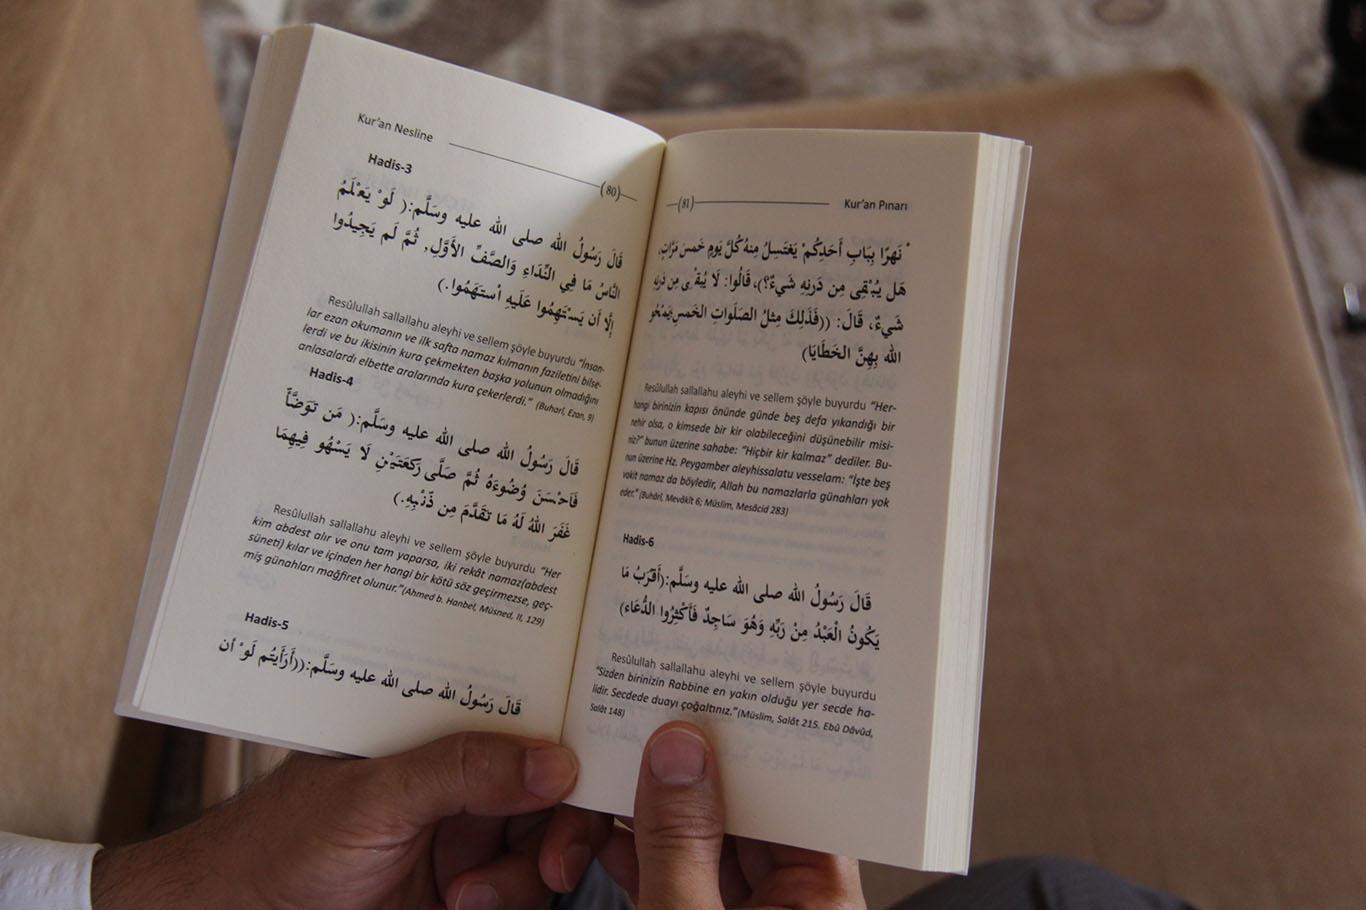 Kur'an Nesline
(80)
Hadis-3
قَالَ رَسُولُ الله صلى الله عليه وسَلَّم:( لَوْ يَعْلَمُ
النَّاسُ مَا فِي النِّدَاءِ وَالصَّفِّ الأَوَّلِ، ثُمَّ لَم يَجِيدُوا
إِلَّا أَن يَسْتَهِمُوا عَلَيهِ أستَهَمُوا.)
Resûlullah sallallahu aleyhi ve sellem şöyle buyurdu “İnsan-
lar ezan okumanın ve ilk safta namaz kılmanın faziletini bilse-
lerdi ve bu ikisinin kura çekmekten başka yolunun olmadığını
anlasalardı elbette aralarında kura çekerlerdi.” (Buharî, Ezan, 9)
Hadis-4
قَالَ رَسُولُ الله صلى الله عليه وسَلَّم:( مَن تَوَضَّأَ
فَاَحْسَنَ وُضُوءَهُ ثُمَّ صَلَّى رَكعَتَيْنِ لَا يَسْهُو فِيهِمَا
غَفَرَ اللهُ لَهُ مَا تقَدَّمَ مِن ذَنْبِهِ.)
Resûlullah sallallahu aleyhi ve sellem şöyle buyurdu “Her
kim abdest alır ve onu tam yaparsa, iki rekât namaz(abdest
süneti) kılar ve içinden her hangi bir kötü söz geçirmezse, geç-
miş günahları mağfiret olunur.”(Ahmed b. Hanbel, Müsned, II, 129)
Hadis-5
قَالَ رَسُولُ الله صلى الله عليه وسَلَّم:((أَرَأَيتُم لَوْ أن
(81)
Kur'an Pınarı
نَهرًا بِبَابِ أَحَدِكُمْ يَغتَسِلُ مِنهُ كُلَّ يَومٍ خَمسَ مَرَّاتٍ،
هَل يُبْقِى مِن دَرنِهِ شَيءٌ؟)، قَالُوا: لَا يُبقْى مِن دَرنِهِ
شَيءٌ، قَالَ: ((فَذَلِكَ مِثلُ الصَلَواتِ الخَمسِ يَمْحُو
الله بِهِنَّ الخَطَايَا)
Resûlullah sallallahu aleyhi ve sellem şöyle buyurdu “Her-
hangi birinizin kapısı önünde günde beş defa yıkandığı bir
nehir olsa, o kimsede bir kir olabileceğini düşünebilir misi-
niz?” bunun üzerine sahabe: “Hiçbir kir kalmaz” dediler. Bu-
nun üzerine Hz. Peygamber aleyhissalatu vesselam: “İşte beş
vakit namaz da böyledir, Allah bu namazlarla günahları yok
eder.” (Buhârî, Mevâkît 6; Müslim, Mesâcid 283)
Hadis-6
قَالَ رَسُولُ الله صلى الله عليه وسَلَّم:(أَقرَبُ مَا
يَكُونُ الْعَبْدُ مِنْ رَبِّهِ وَهُوَ سَاجِدٌ فَأَكثِرُوا الدُّعَاء)
Resûlullah sallallahu aleyhi ve sellem şöyle buyurdu
“Sizden birinizin Rabbine en yakın olduğu yer secde ha-
lidir. Secdede duayı çoğaltınız.”(Müslim, Salât 215. Ebû Dâvûd,
Salât 148)